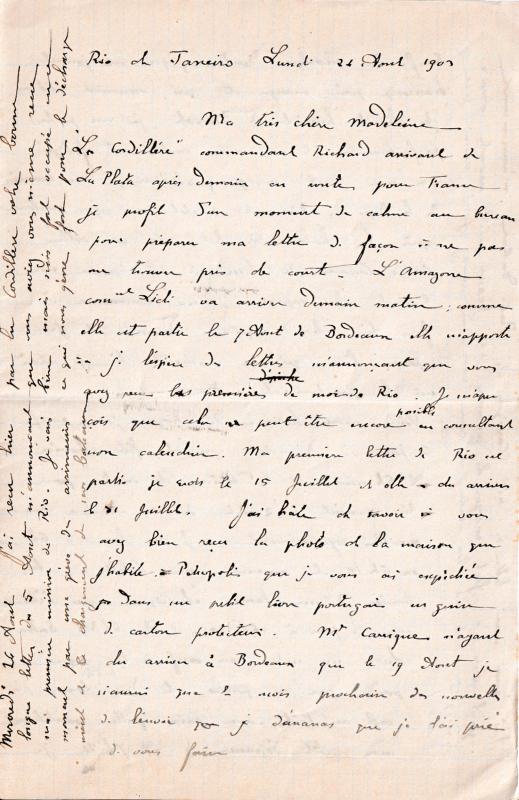 Rio de Janeiro Lundi 24 Aout 1903
Ma très chère Madeleine
"La Cordillère" commandant Richard arrivant de
La Plata après demain en route pour France
je profite d'un moment de calme au bureau
pour préparer ma lettre de façon à ne pas
me trouver pris de court. L'Amazone
comt Lidi va arriver demain matin; comme
elle est partie le 7 Aout de Bordeaux elle m'apporte
ra je l'espère des lettres m'annonçant que vous
avez reçu les premières de moi de Rio. J'aper
çois que cela ne peut être encore possible en consultant
mon calendrier. Ma première lettre de Rio est
partie je crois le 15 Juillet et elle a du arriver
le 31 Juillet. J'ai hâte de savoir si vous
avez bien reçu la photo de la maison que
j'habite à Petropolis que je vous ai expédiée
dans un petit livre portugais en guise
de carton protecteur. Mr Carrique n'ayant
du arriver à Bordeaux que le 19 Aout je
n'aurai que le mois prochain des nouvelles
de l'envoi d'ananas que je l'ai prié
de vous faire
Mercredi 26 Aout J'ai reçu hier par la Cordillère votre bonne
longue lettre du 5 Aout m'annonçant que vous aviez vous même reçu
ma première missive de Rio. Je vais bien mais suis fort occupé en ce
moment par une grève des arrimeurs ce qui nous gêne fort pour le décharge
ment et le chargement de nos bateaux